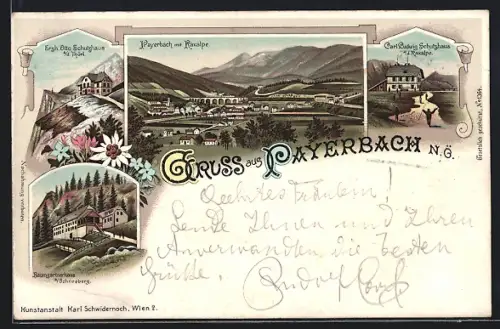 Erzh. Otto Schutzhaus
a/d. Thörl.
Payerbach mit Raxalpe.
Carl Ludwig Schutzhaus
a/d. Raxalpe.
Gesetzlich geschützt.
Nachahmung verboten.
GRUSS aus PAYERBACH N.Ö.
Baumgartnerhaus
a/Schneeberg.
Geehrtes Fräulein!
Sende Ihnen und Ihren
Anverwandten die besten
Grüße. Rudolf
Kunstanstalt Karl Schwidernoch, Wien 2.